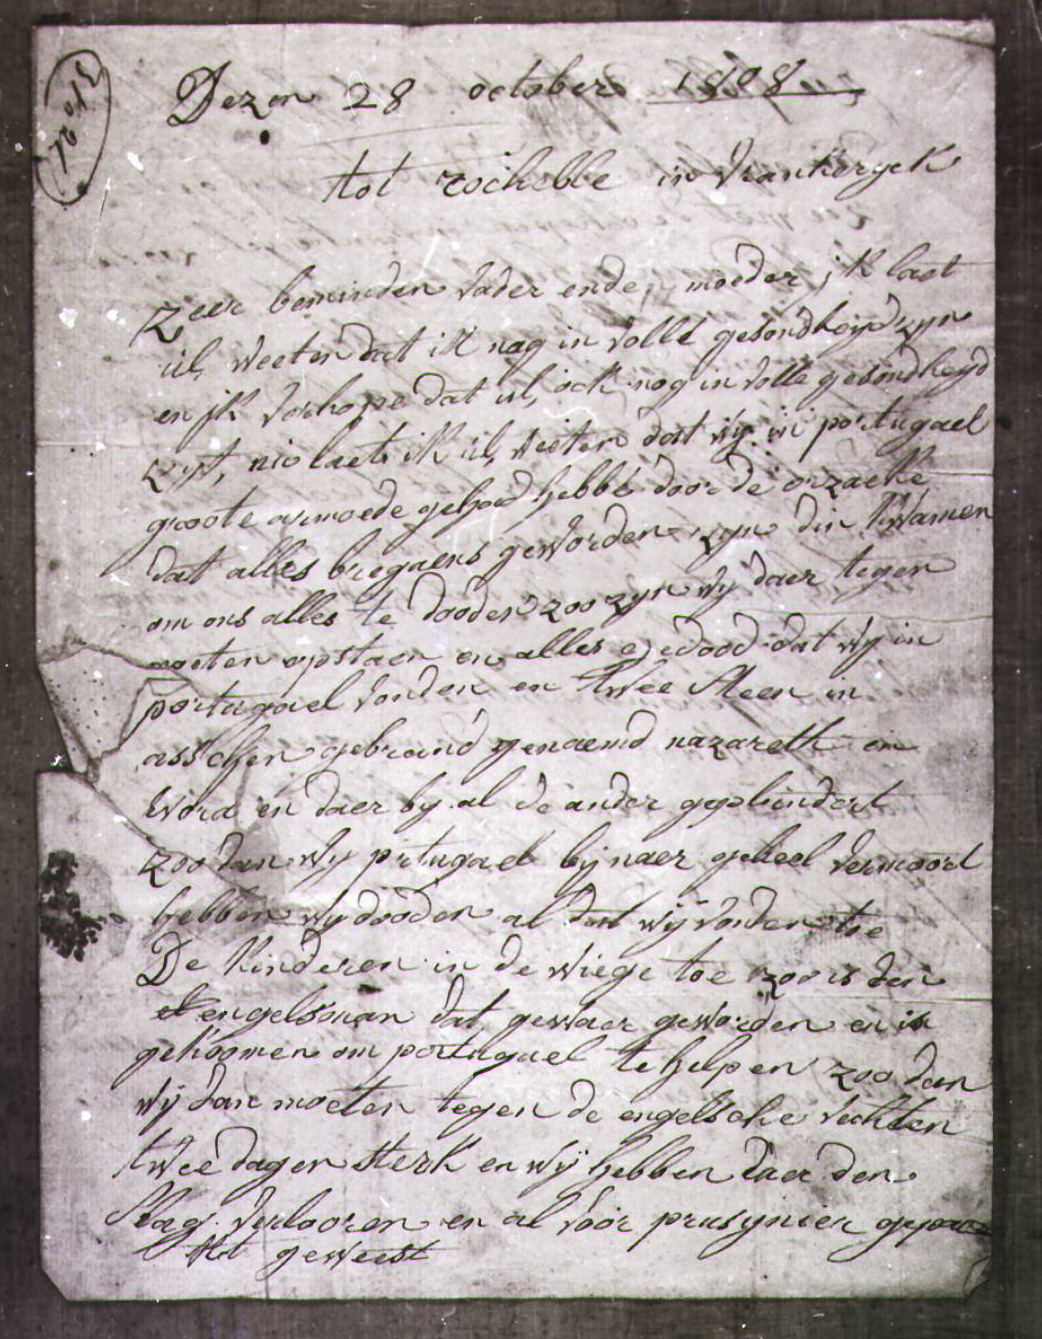 Dezen 28 october 1808
tot rochelle in Vrankeryck
Zeer beminden vader ende moeder jk laet
ul, weeten dat ik nog in volle gesondheyd zyn
en jk verhope dat ul, ock nog in volle gesondheyd
zyt, nio laet ik ul, weeten dat wy in portugael
groote armoede gehad hebbe door de orzaeke
dat alles bregaens geworden zyn din kwamen
om ons alles te dooden zoo zyn wy daer tegen
moeten opstaen en alles gedood dat wy in
portugael vonden en twee steen in
asschen gebrand genaemd nazareth en
vora en daer by al de ander geplundert
zoo dan wy prtugael bynaer geheel vermoort
hebben wy dooden al dat wy vonden toe
De kinderen in de wiege toe zoo is den
engelsman dat gewaer geworden en is
gekoomen om portugael te helpen zoo dan
wy dan moeten tegen de engelsche vechten
twee dagen sterk en wy hebben daer den
slag verlooren en al voor prusynier
geweest